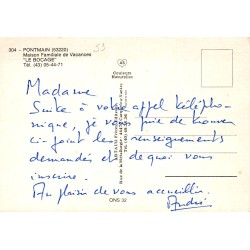 304 - PONTMAIN (53220)
Maison Familiale de Vacances
"LE BOCAGE"
Tél. (43) 05-44-71
53
Couleurs
Naturelles
Madame
Suite à votre appel télépho-
nique, je vous prie de trouver
ci-joint les renseignements
demandés et de quoi vous
inscrire.
Au plaisir de vous accueillir.
André